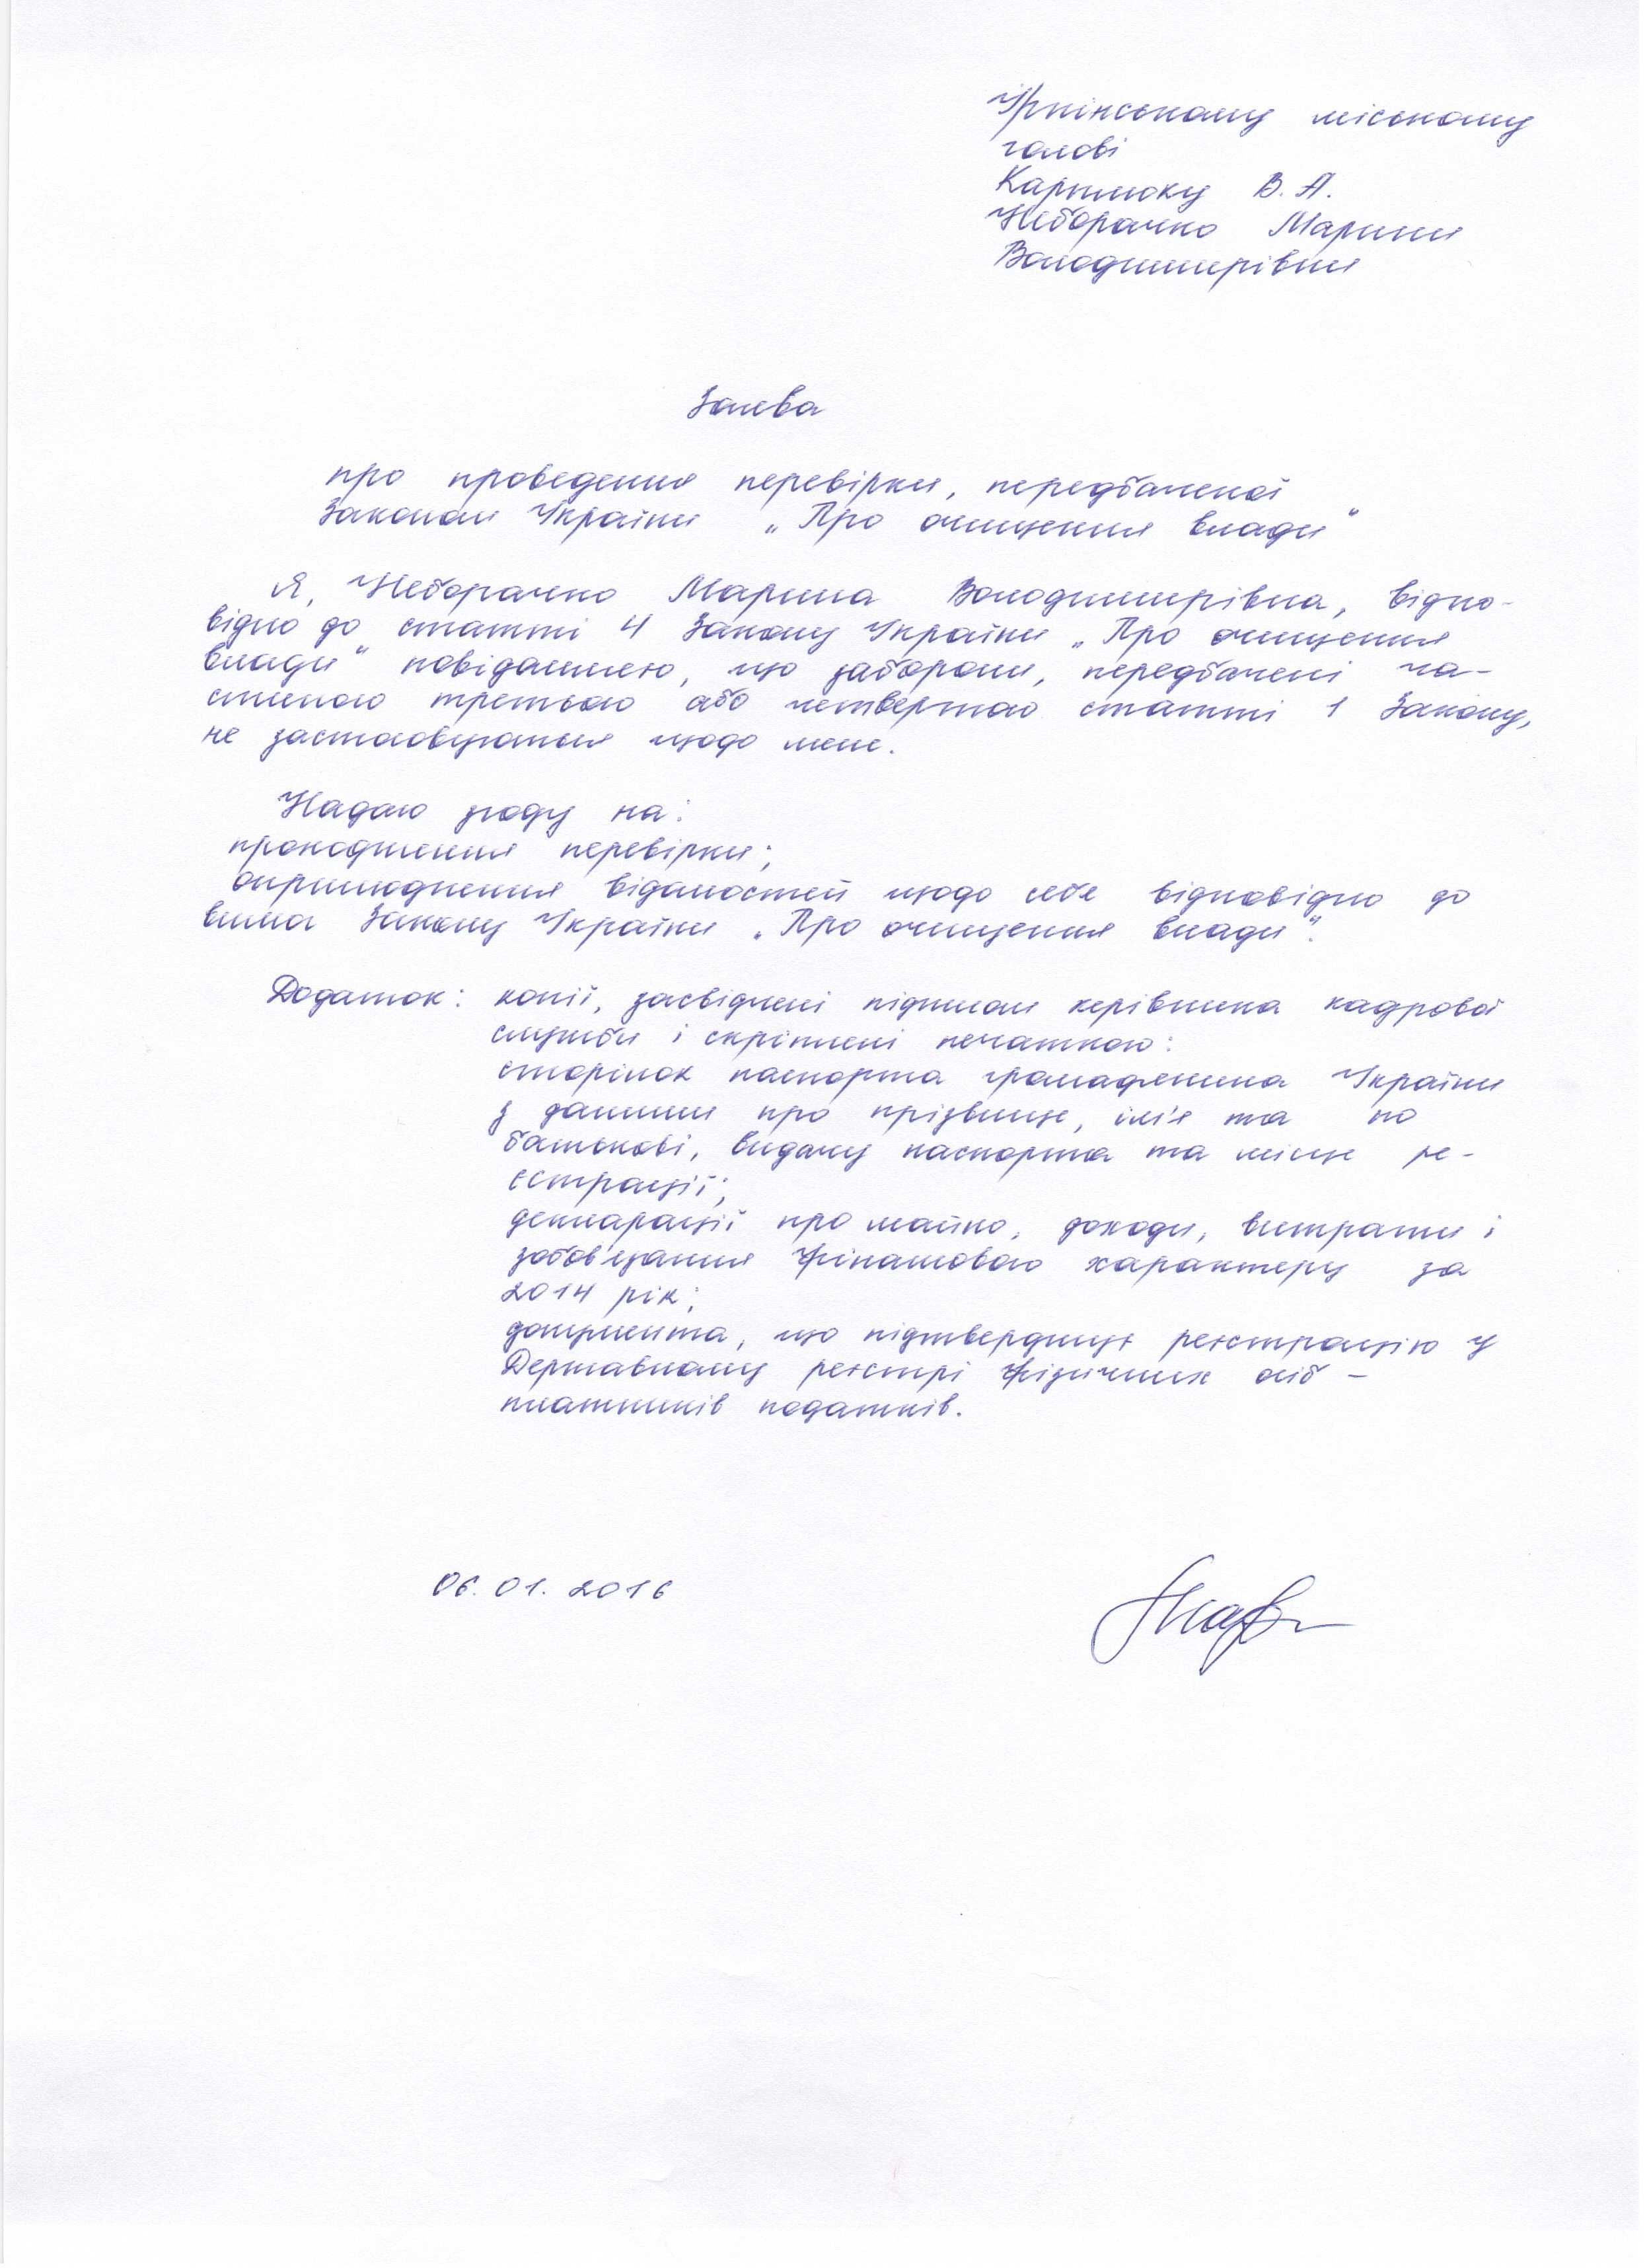 Ірпінському міському
голові
Карплюку В. А.
Неборачко Марини
Володимирівни
Заява
про проведення перевірки, передбаченої
Законом України „Про очищення влади"
Я, Неборачко Марина Володимирівна, відпо-
відно до статті 4 Закону України „Про очищення
влади" повідомляю, що заборони, передбачені ча-
стиною третьою або четвертою статті 1 Закону,
не застосовуються щодо мене.
Надаю згоду на:
проходження перевірки;
оприлюднення відомостей щодо себе відповідно до
вимог Закону України „Про очищення влади".
Додаток: копії, засвідчені підписом керівника кадрової
служби і скріплені печаткою:
сторінок паспорта громадянина України
з даними про прізвище, ім'я та по
батькові, видачу паспорта та місце ре-
єстрації;
декларації про майно, доходи, витрати і
зобов'язання фінансового характеру за
2014 рік;
документа, що підтверджує реєстрацію у
Державному реєстрі фізичних осіб -
платників податків.
06. 01. 2016